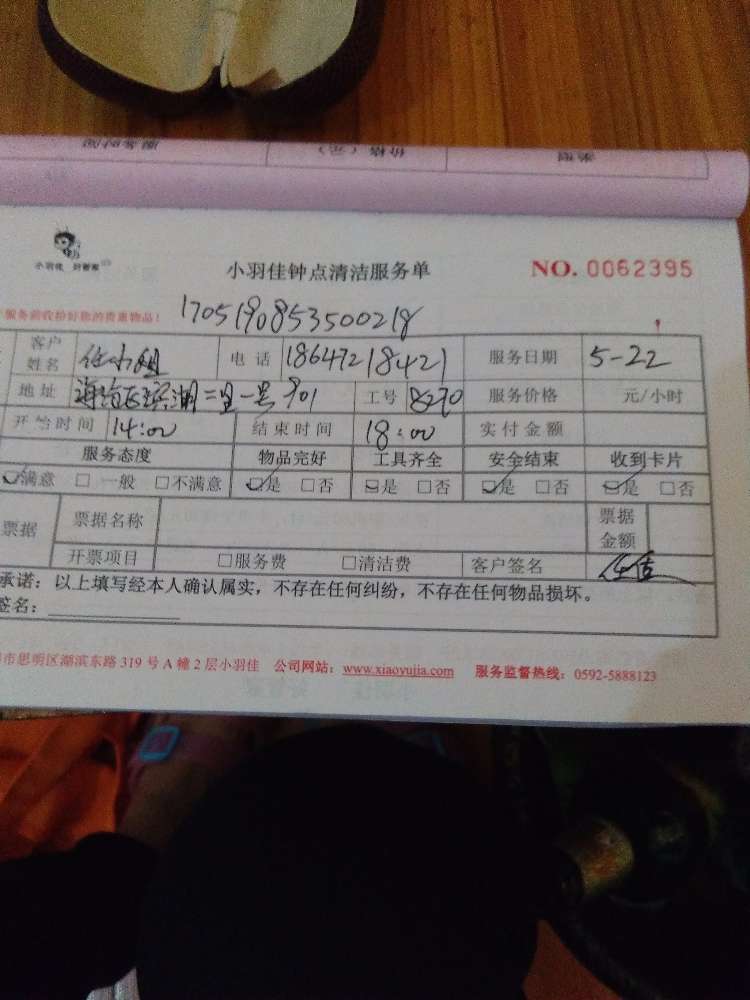 服务时间 价格（元） 类型
小羽佳 好管家
小羽佳钟点清洁服务单 NO. 0062395
服务前收拾好您的贵重物品！
1705190853500218
客户姓名 任小姐 电话 18647218421 服务日期 5-22
地址 二里一号901 工号 8270 服务价格 元/小时
开始时间 14:00 结束时间 18:00 实付金额
服务态度 物品完好 工具齐全 安全结束 收到卡片
☑满意 □一般 □不满意 ☑是 □否 ☑是 □否 ☑是 □否 ☑是 □否
票据 票据名称 票据金额
开票项目 □服务费 □清洁费 客户签名
承诺：以上填写经本人确认属实，不存在任何纠纷，不存在任何物品损坏。
签名：
市思明区湖滨东路 319 号 A 幢 2 层小羽佳 公司网站：www.xiaoyujia.com 服务监督热线：0592-5888123